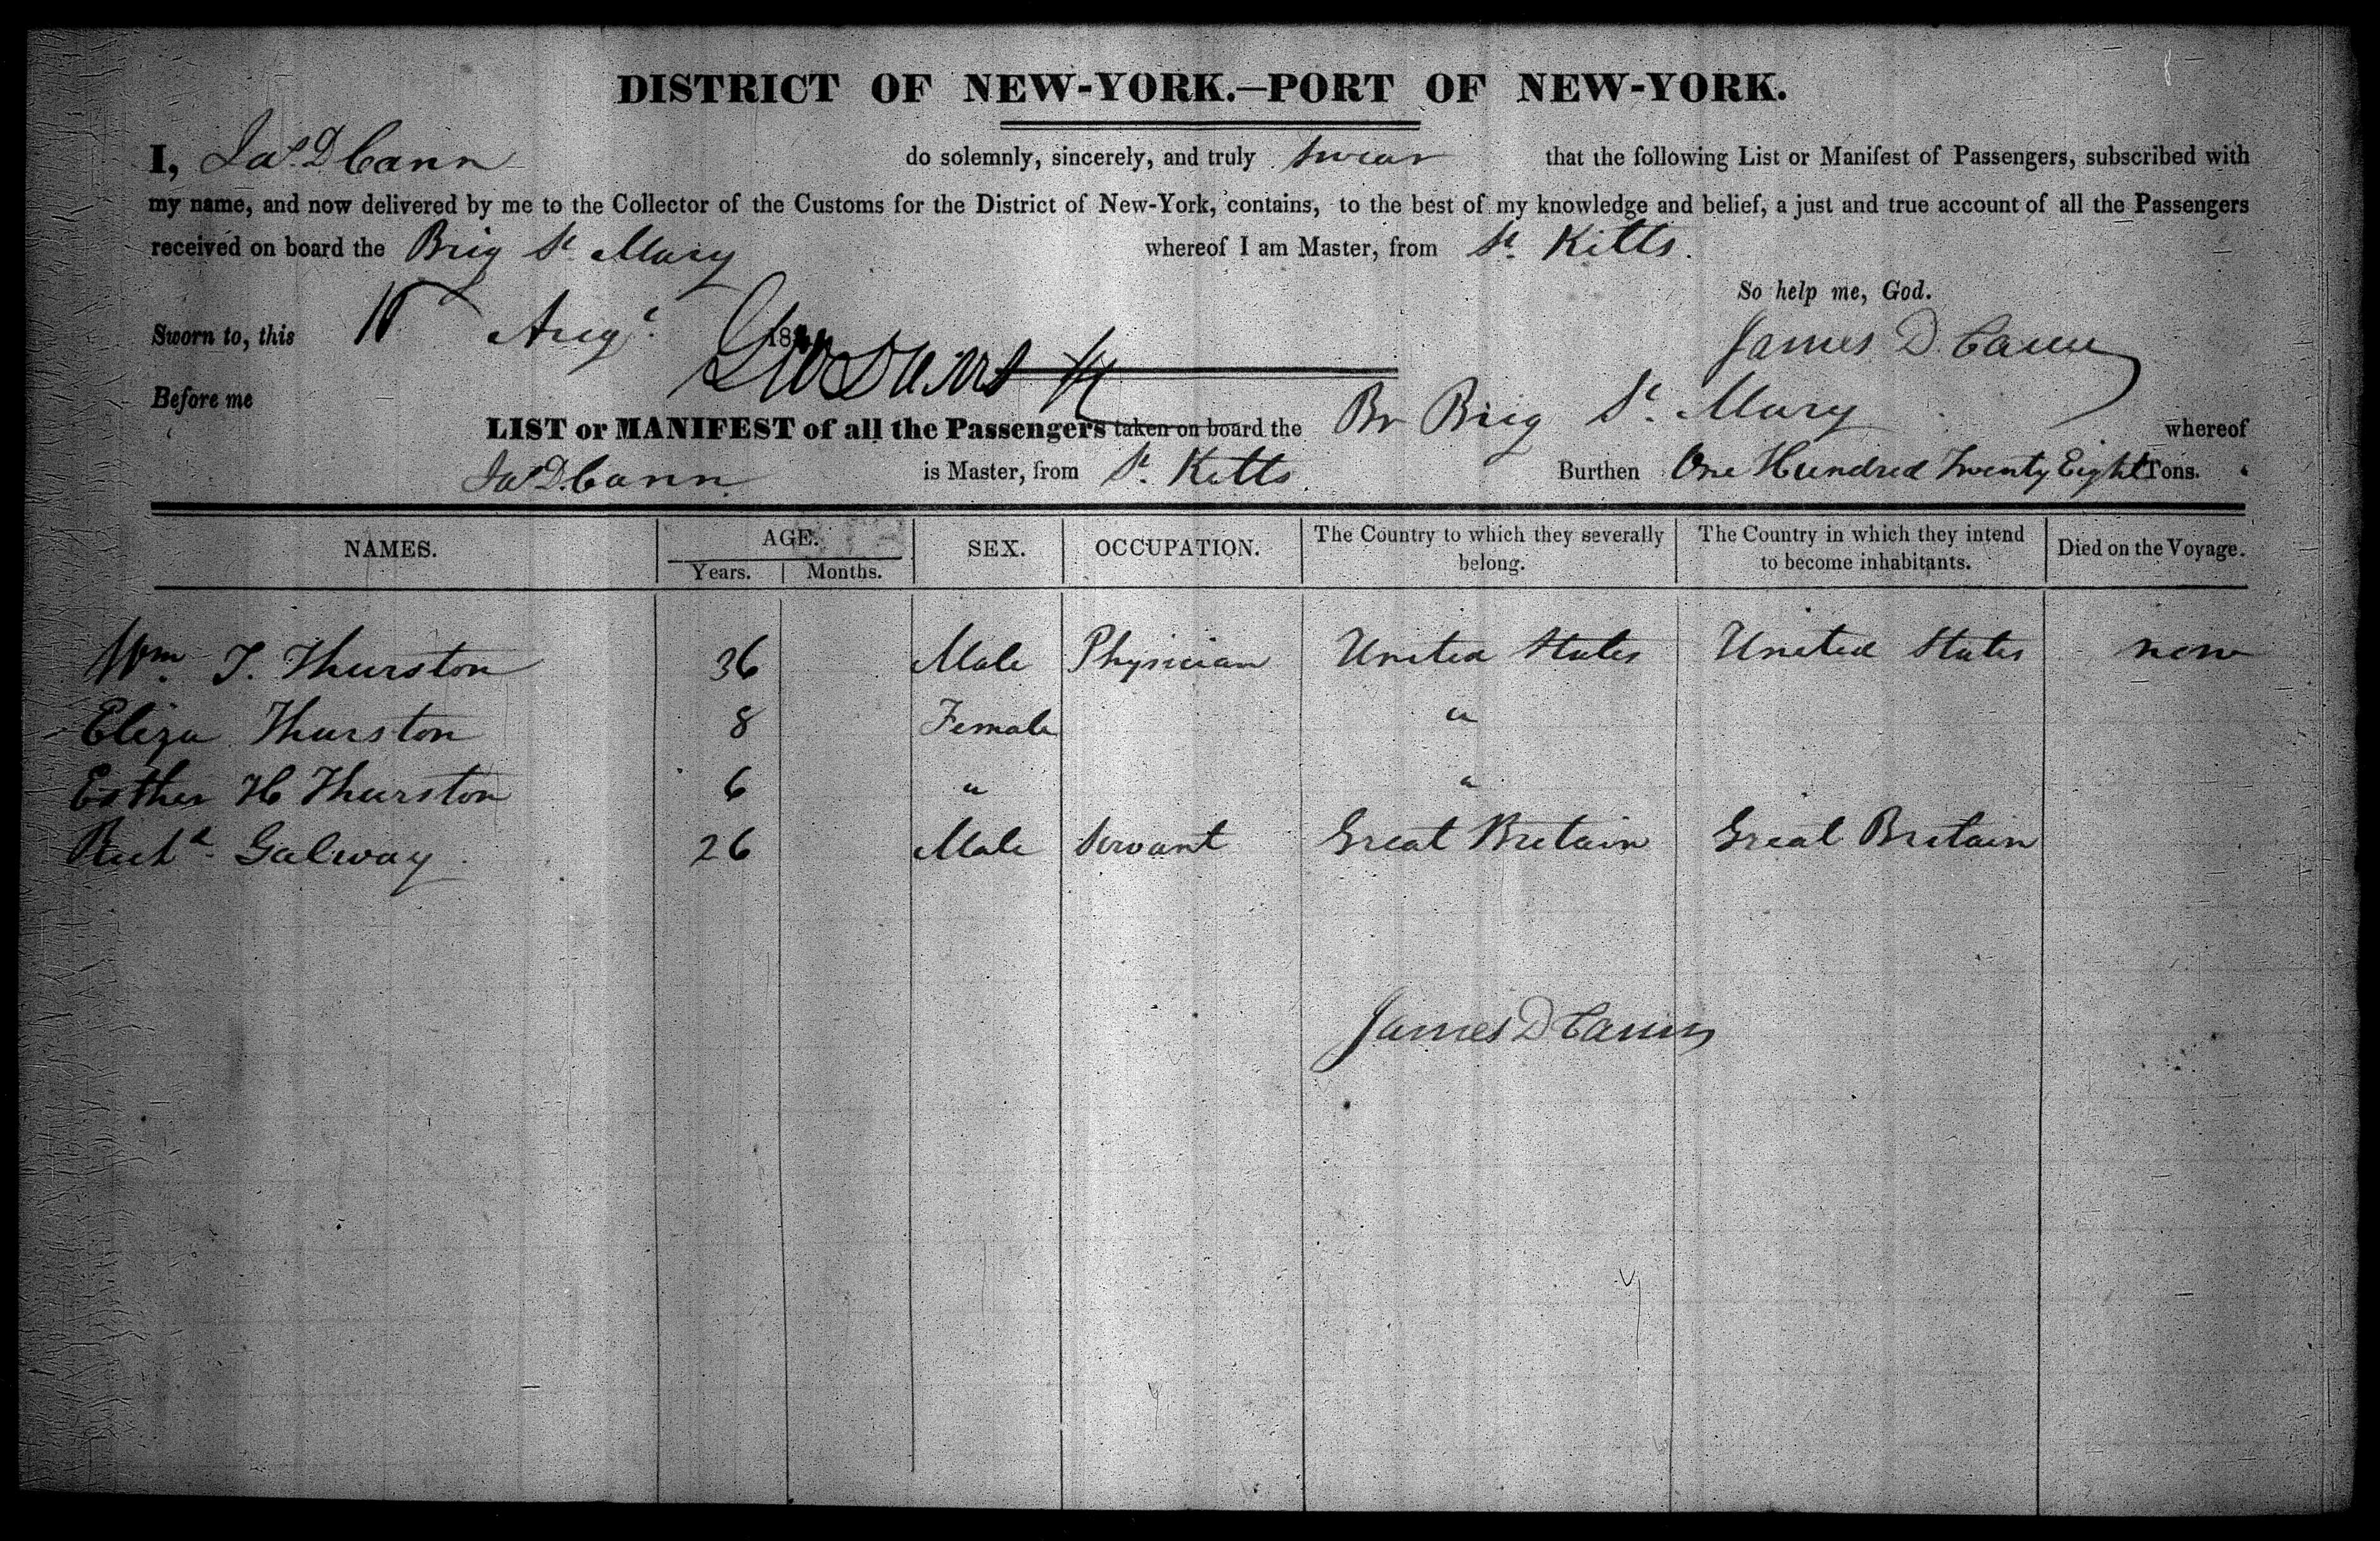 DISTRICT OF NEW-YORK.—PORT OF NEW-YORK.
I, Jas. D Cann do solemnly, sincerely, and truly swear that the following List or Manifest of Passengers, subscribed with
my name, and now delivered by me to the Collector of the Customs for the District of New-York, contains, to the best of my knowledge and belief, a just and true account of all the Passengers
received on board the Brig St. Mary whereof I am Master, from St. Kitts.
So help me, God.
Sworn to, this Augt. 18
James D. Cann
Before me
LIST or MANIFEST of all the Passengers taken on board the Br Brig St. Mary whereof
Jas D. Cann is Master, from St. Kitts Burthen One Hundred Twenty Eight Tons.
NAMES. AGE. SEX. OCCUPATION. The Country to which they severally belong. The Country in which they intend to become inhabitants. Died on the Voyage.
Years. Months.
Wm. T. Thurston 36 Male Physician United States United States none
Eliza Thurston 8 Female "
Esther H Thurston 6 " "
Richd. Galway 26 Male Servant Great Britain Great Britain
James D Cann